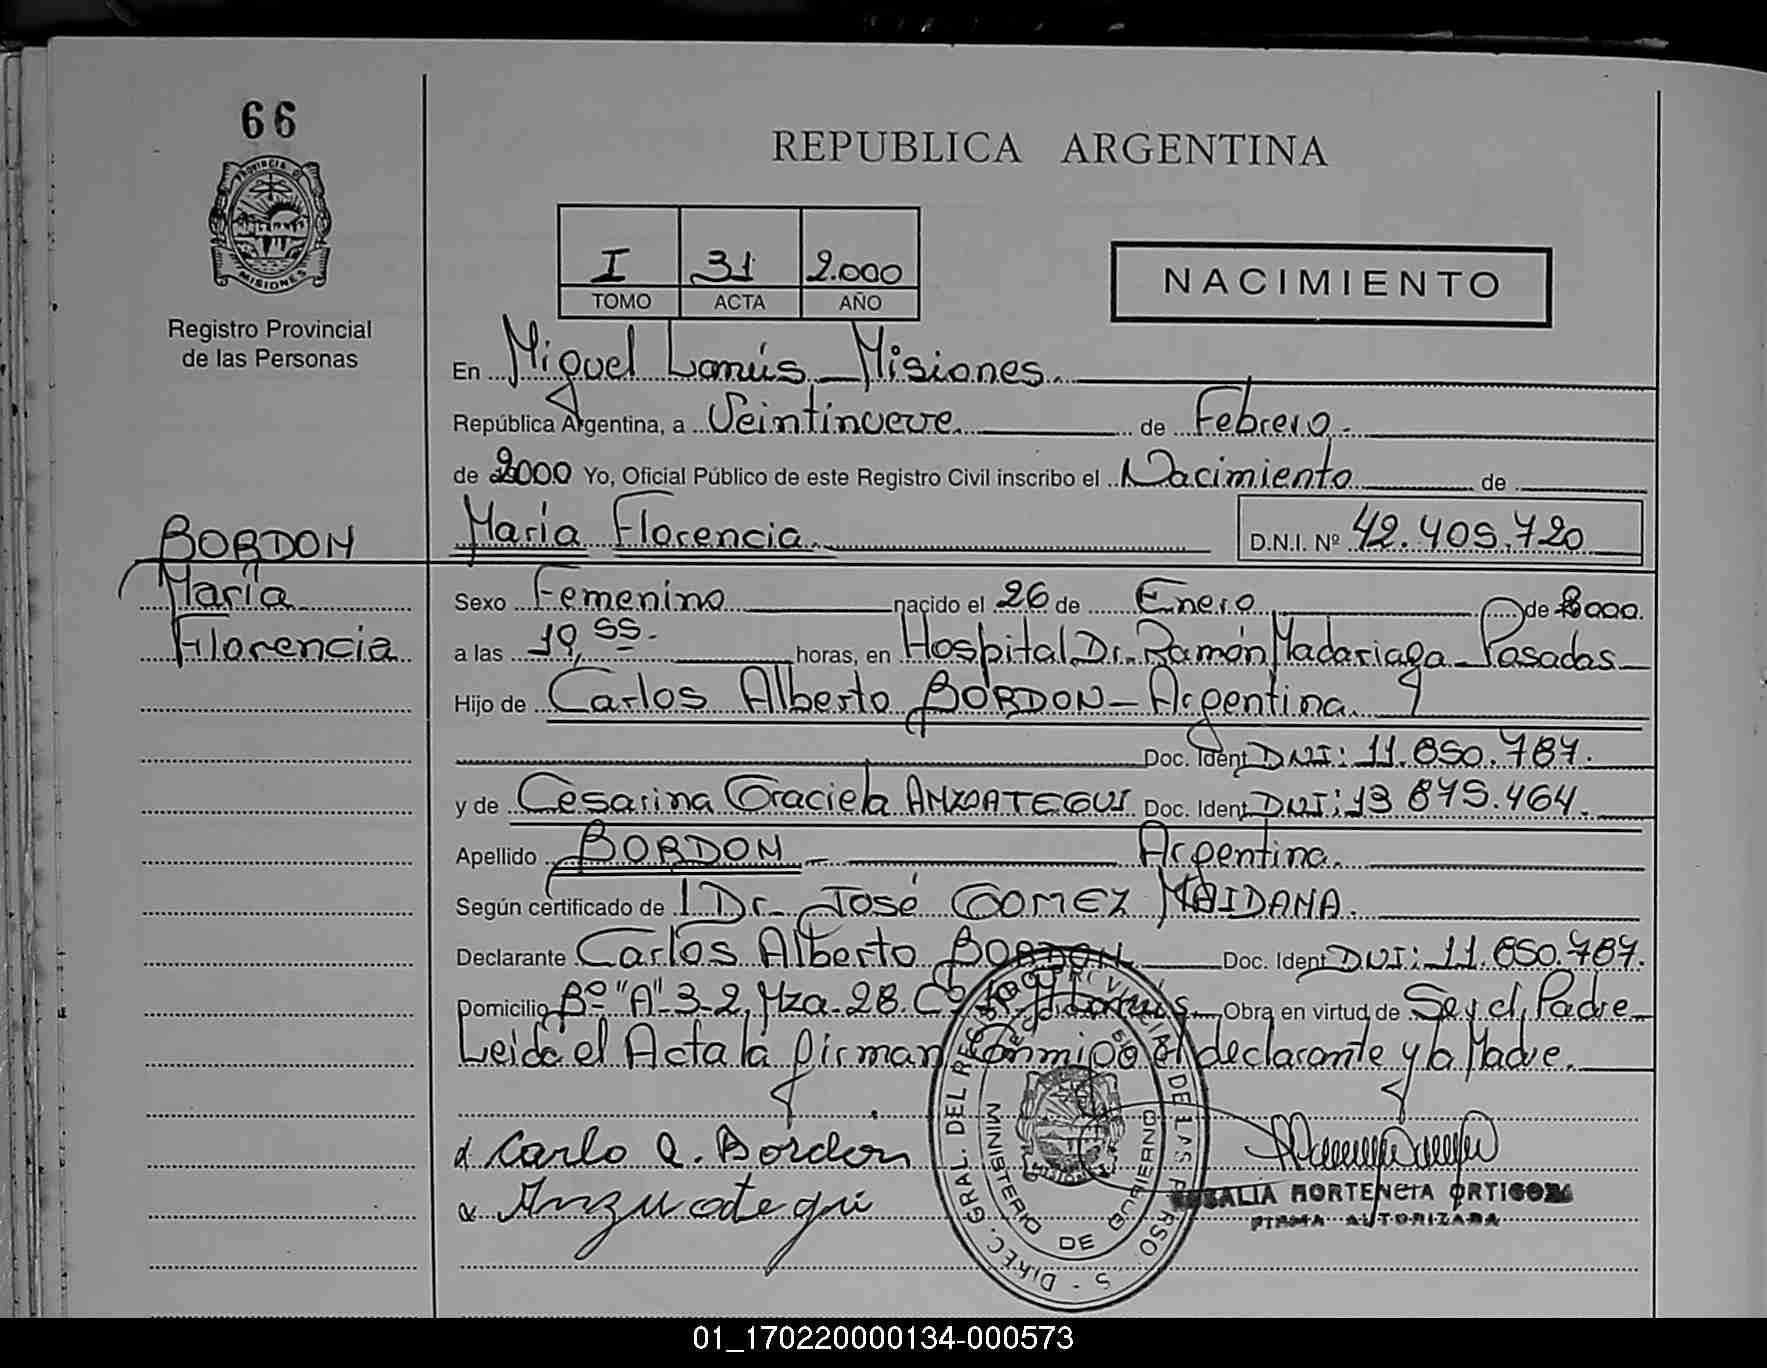 66
PROVINCIA DE
MISIONES
Registro Provincial
de las Personas
BORDON
María
Florencia
REPUBLICA ARGENTINA
I 31 2.000
TOMO ACTA AÑO
NACIMIENTO
En Miguel Lanús - Misiones.
República Argentina, a Veintinueve de Febrero.-
de 2000 Yo, Oficial Público de este Registro Civil inscribo el Nacimiento de
María Florencia D.N.I. Nº 42.405.720
Sexo Femenino nacido el 26 de Enero de 2000.
a las 19,55.- horas, en Hospital Dr. Ramón Madariaga - Posadas -
Hijo de Carlos Alberto BORDON - Argentina.
Doc. Ident DNI: 11.850.787.
y de Cesarina Graciela ANZOATEGUI Doc. Ident DNI: 13 875.464.
Apellido BORDON - Argentina.
Según certificado de Dr. José GOMEZ MAIDANA.
Declarante Carlos Alberto BORDON Doc. Ident DNI: 11.850.787.
Domicilio Bº "A" 3-2, Mza. 28. Lanús Obra en virtud de Ser el Padre
Leida el Acta la firman Conmigo el declarante y la Madre.
Carlo A. Bordón
Anzuategui
DIREC. GRAL. DEL REGISTRO PROVINCIAL DE LAS PERSONAS
MINISTERIO DE GOBIERNO
ROSALIA HORTENCIA ORTIGOZA
FIRMA AUTORIZADA
01_170220000134-000573